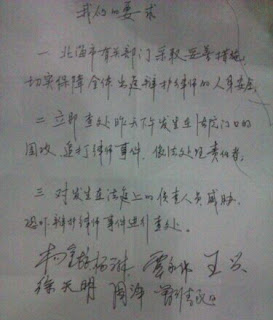 我们的要求
一 北海市有关部门采取妥善措施,
切实保障全体出庭辩护律师的人身安全;
二 立即查处昨天下午发生在法院门口的
围攻、追打律师事件,依法处理责任者;
三 对发生在法庭上的侦查人员威胁、
恐吓辩护律师事件进行查处。
杨金柱 杨名跨 王兴
徐天明 周泽